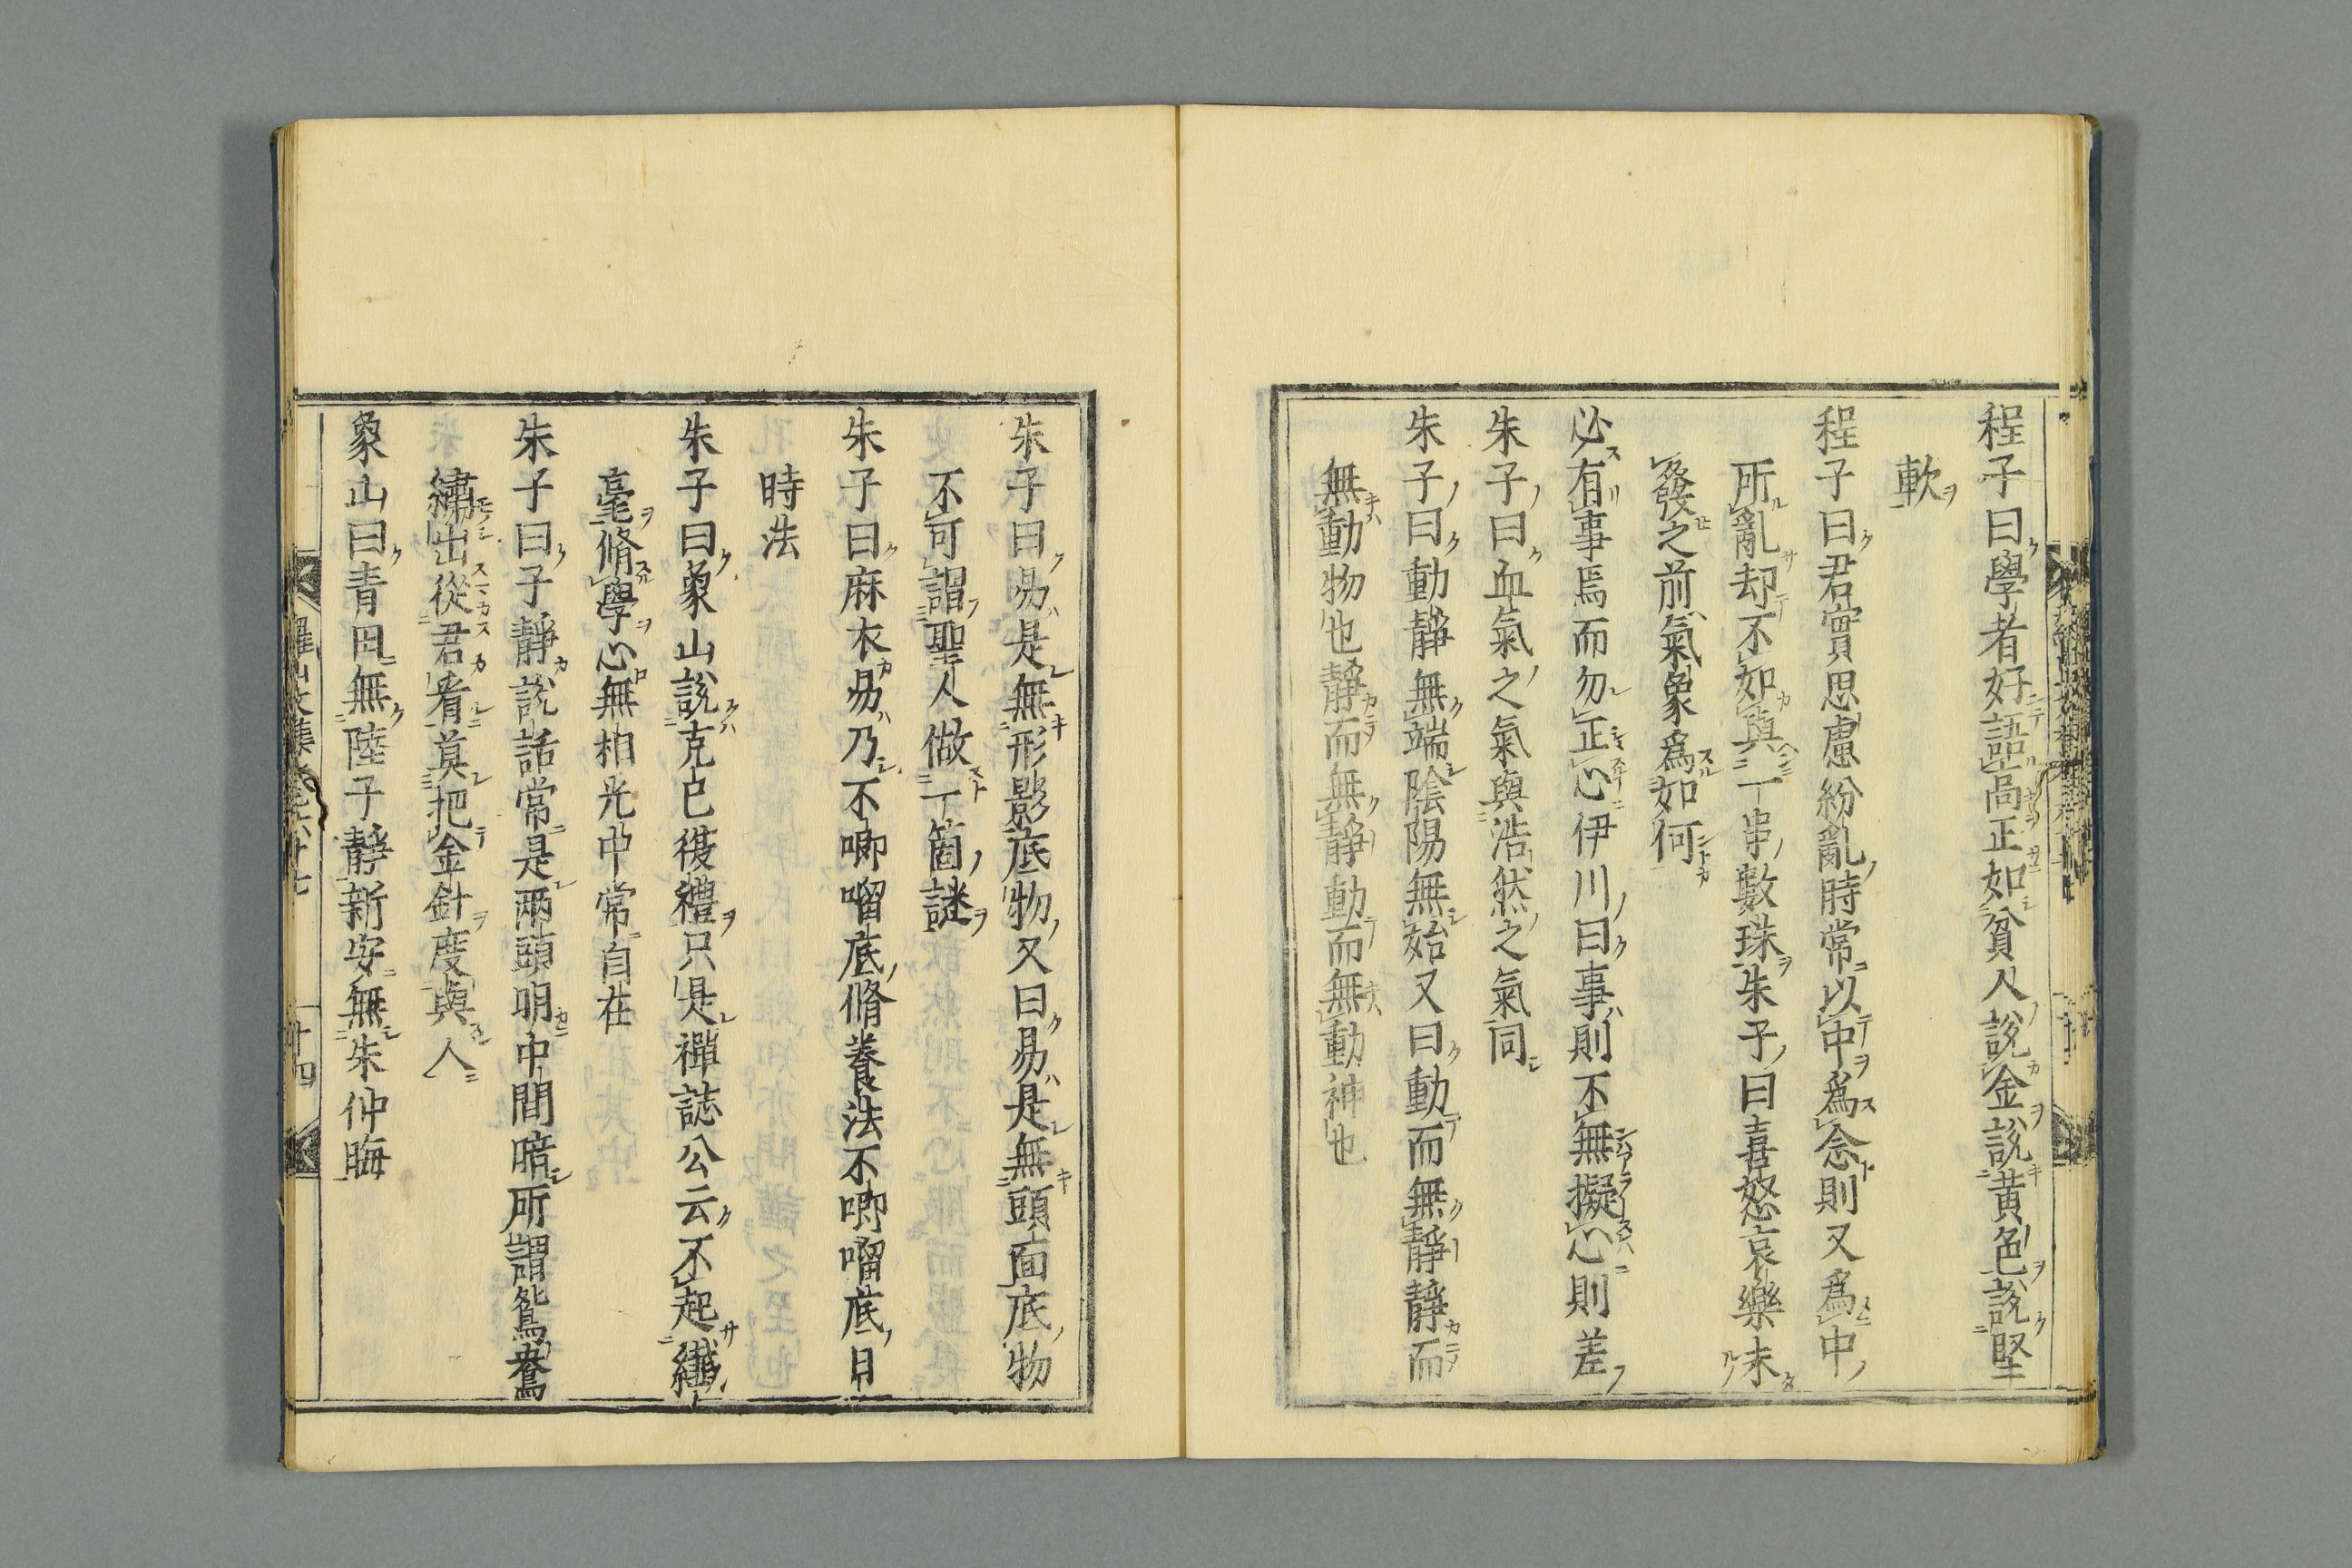 程子曰學者好語高正如貧人說金說黃色說堅
軟
程子曰君實思慮紛亂時常以中爲念則又爲中
所亂却不如與一串數珠朱子曰喜怒哀樂未
發之前氣象爲如何
必有事焉而勿正心伊川曰事則不無擬心則差
朱子曰血氣之氣與浩然之氣同
朱子曰動靜無端陰陽無始又曰動而無靜靜而
無動物也靜而無靜動而無動神也
朱子曰易是無形影底物又曰易是無頭面底物
不可謂聖人做一箇謎
朱子曰麻衣易乃不唧㗰底脩養法不唧㗰底日
時法
朱子曰象山說克己復禮只是禪誌公云不起纖
毫脩學心無相光中常自在
朱子曰子靜說話常是兩頭明中間暗所謂鴛鴦
繡出從君看莫把金針度與人
象山曰青田無陸子靜新安無朱仲晦
十四